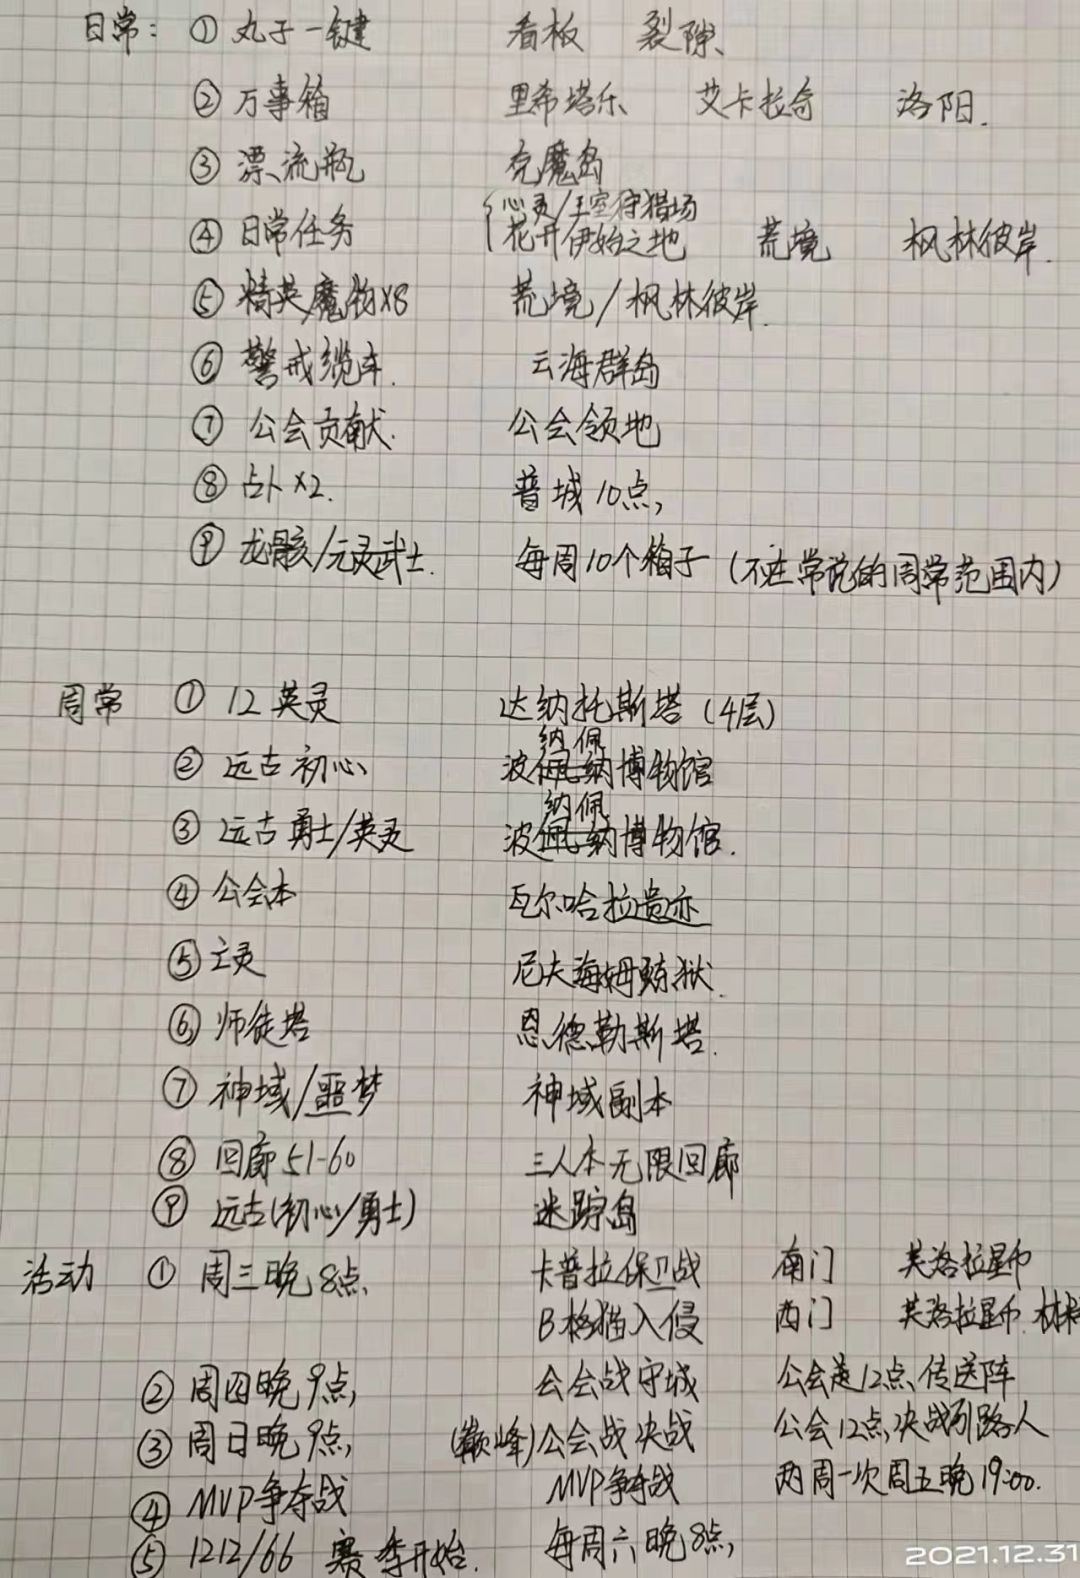 日常: ① 丸子一键 看板 裂隙、
② 万事箱 里希塔乐 艾卡拉奇 洛阳.
③ 漂流瓶 克魔岛
心灵/王室狩猎场
④ 日常任务 花开伊始之地 荒境 枫林彼岸.
⑤ 精英魔物x8 荒境/枫林彼岸.
⑥ 警戒缆车. 云海群岛
⑦ 公会贡献. 公会领地
⑧ 占卜x2. 普城10点,
⑨ 龙骸/元灵武士. 每周10个箱子(不在常说的周常范围内)
周常 ① 12英灵 达纳托斯塔(4层)
纳佩
② 远古初心 波佩纳博物馆
纳佩
③ 远古勇士/英灵 波佩纳博物馆.
④ 公会本 瓦尔哈拉遗迹
⑤ 亡灵 尼夫海姆炼狱.
⑥ 师徒塔 恩德勒斯塔.
⑦ 神域/噩梦 神域副本
⑧ 回廊51-60 三人本无限回廊
⑨ 远古(初心/勇士) 迷踪岛
活动 ① 周三晚8点, 卡普拉保卫战 南门 芙洛拉星币
B格猫入侵 西门 芙洛拉星币.材料
② 周四晚9点, 会会战守城 公会 12点传送阵
③ 周日晚9点, (巅峰)公会战决战 公会12点,决战引路人
④ MVP争夺战 MVP争夺战 两周一次周五晚19:00.
⑤ 1212/66 赛季开始. 每周六晚8点,
2021.12.31